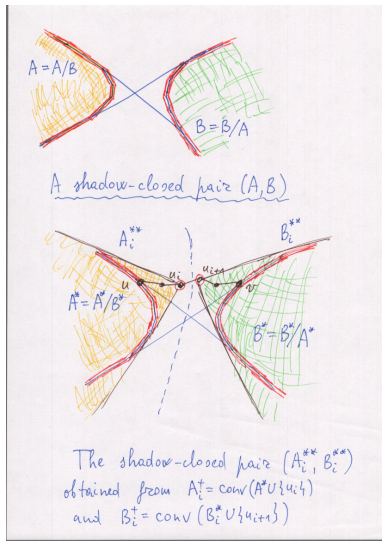 A = A/B
B = B/A
A shadow-closed pair (A,B)
A_i^**
B_i^**
u u_i u_{i+1} v
A^* = A^*/B^*
B^* = B^*/A^*
The shadow-closed pair (A_i^**, B_i^**)
obtained from A_i^† = conv(A^* ∪ {u_i})
and B_i^† = conv(B_i^* ∪ {u_{i+1}})